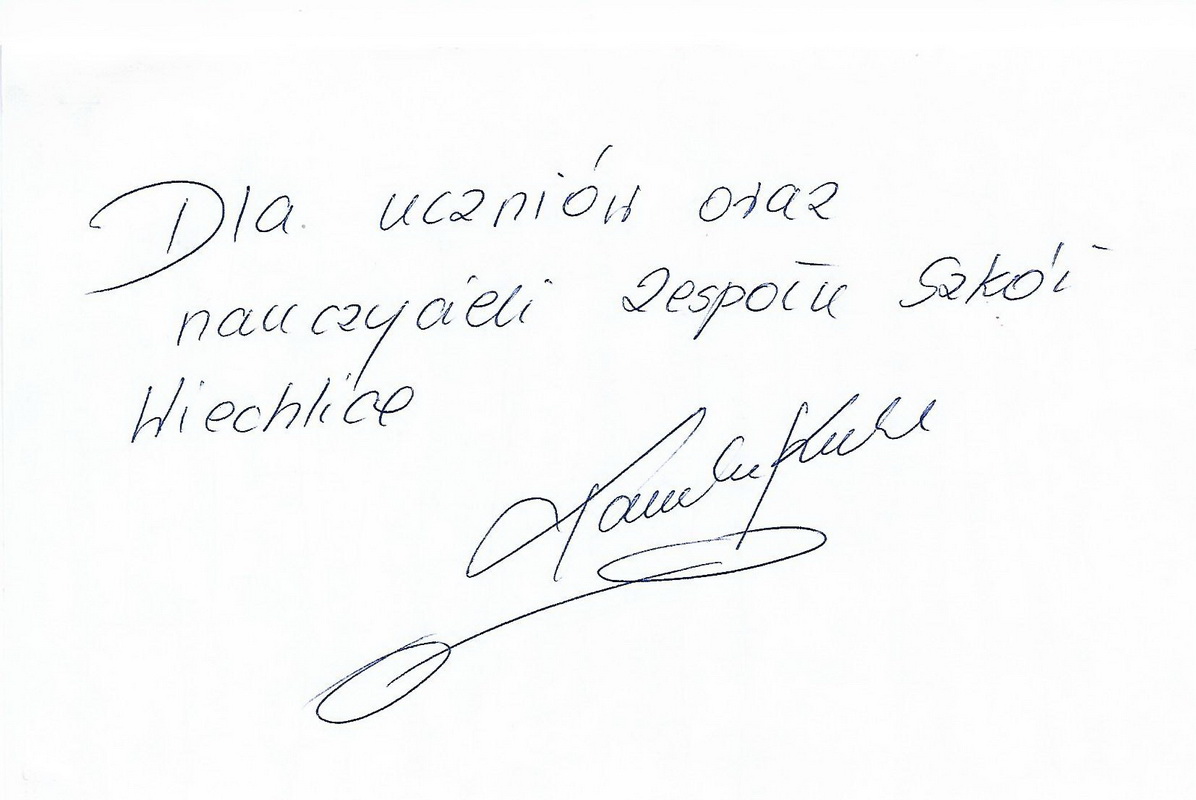 Dla uczniów oraz
nauczycieli zespołu Szkół
Wiechlice